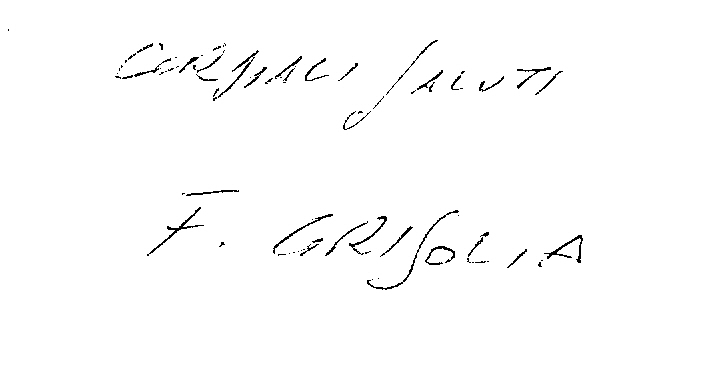 CORDIALI SALUTI
F. GRISOLIA